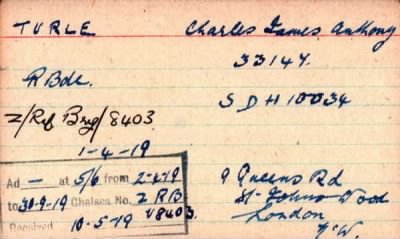 TURLE Charles James Anthony
33147.
R Bde.
SDH 10034
2/Ref Brig/8403
1-4-19
Ad — at 5/6 from 2-4-19
to 30-9-19 Chelsea No. 2 RB
V8403.
Received 10-5-19
9 Queens Rd
St Johns Wood
London
N.W.